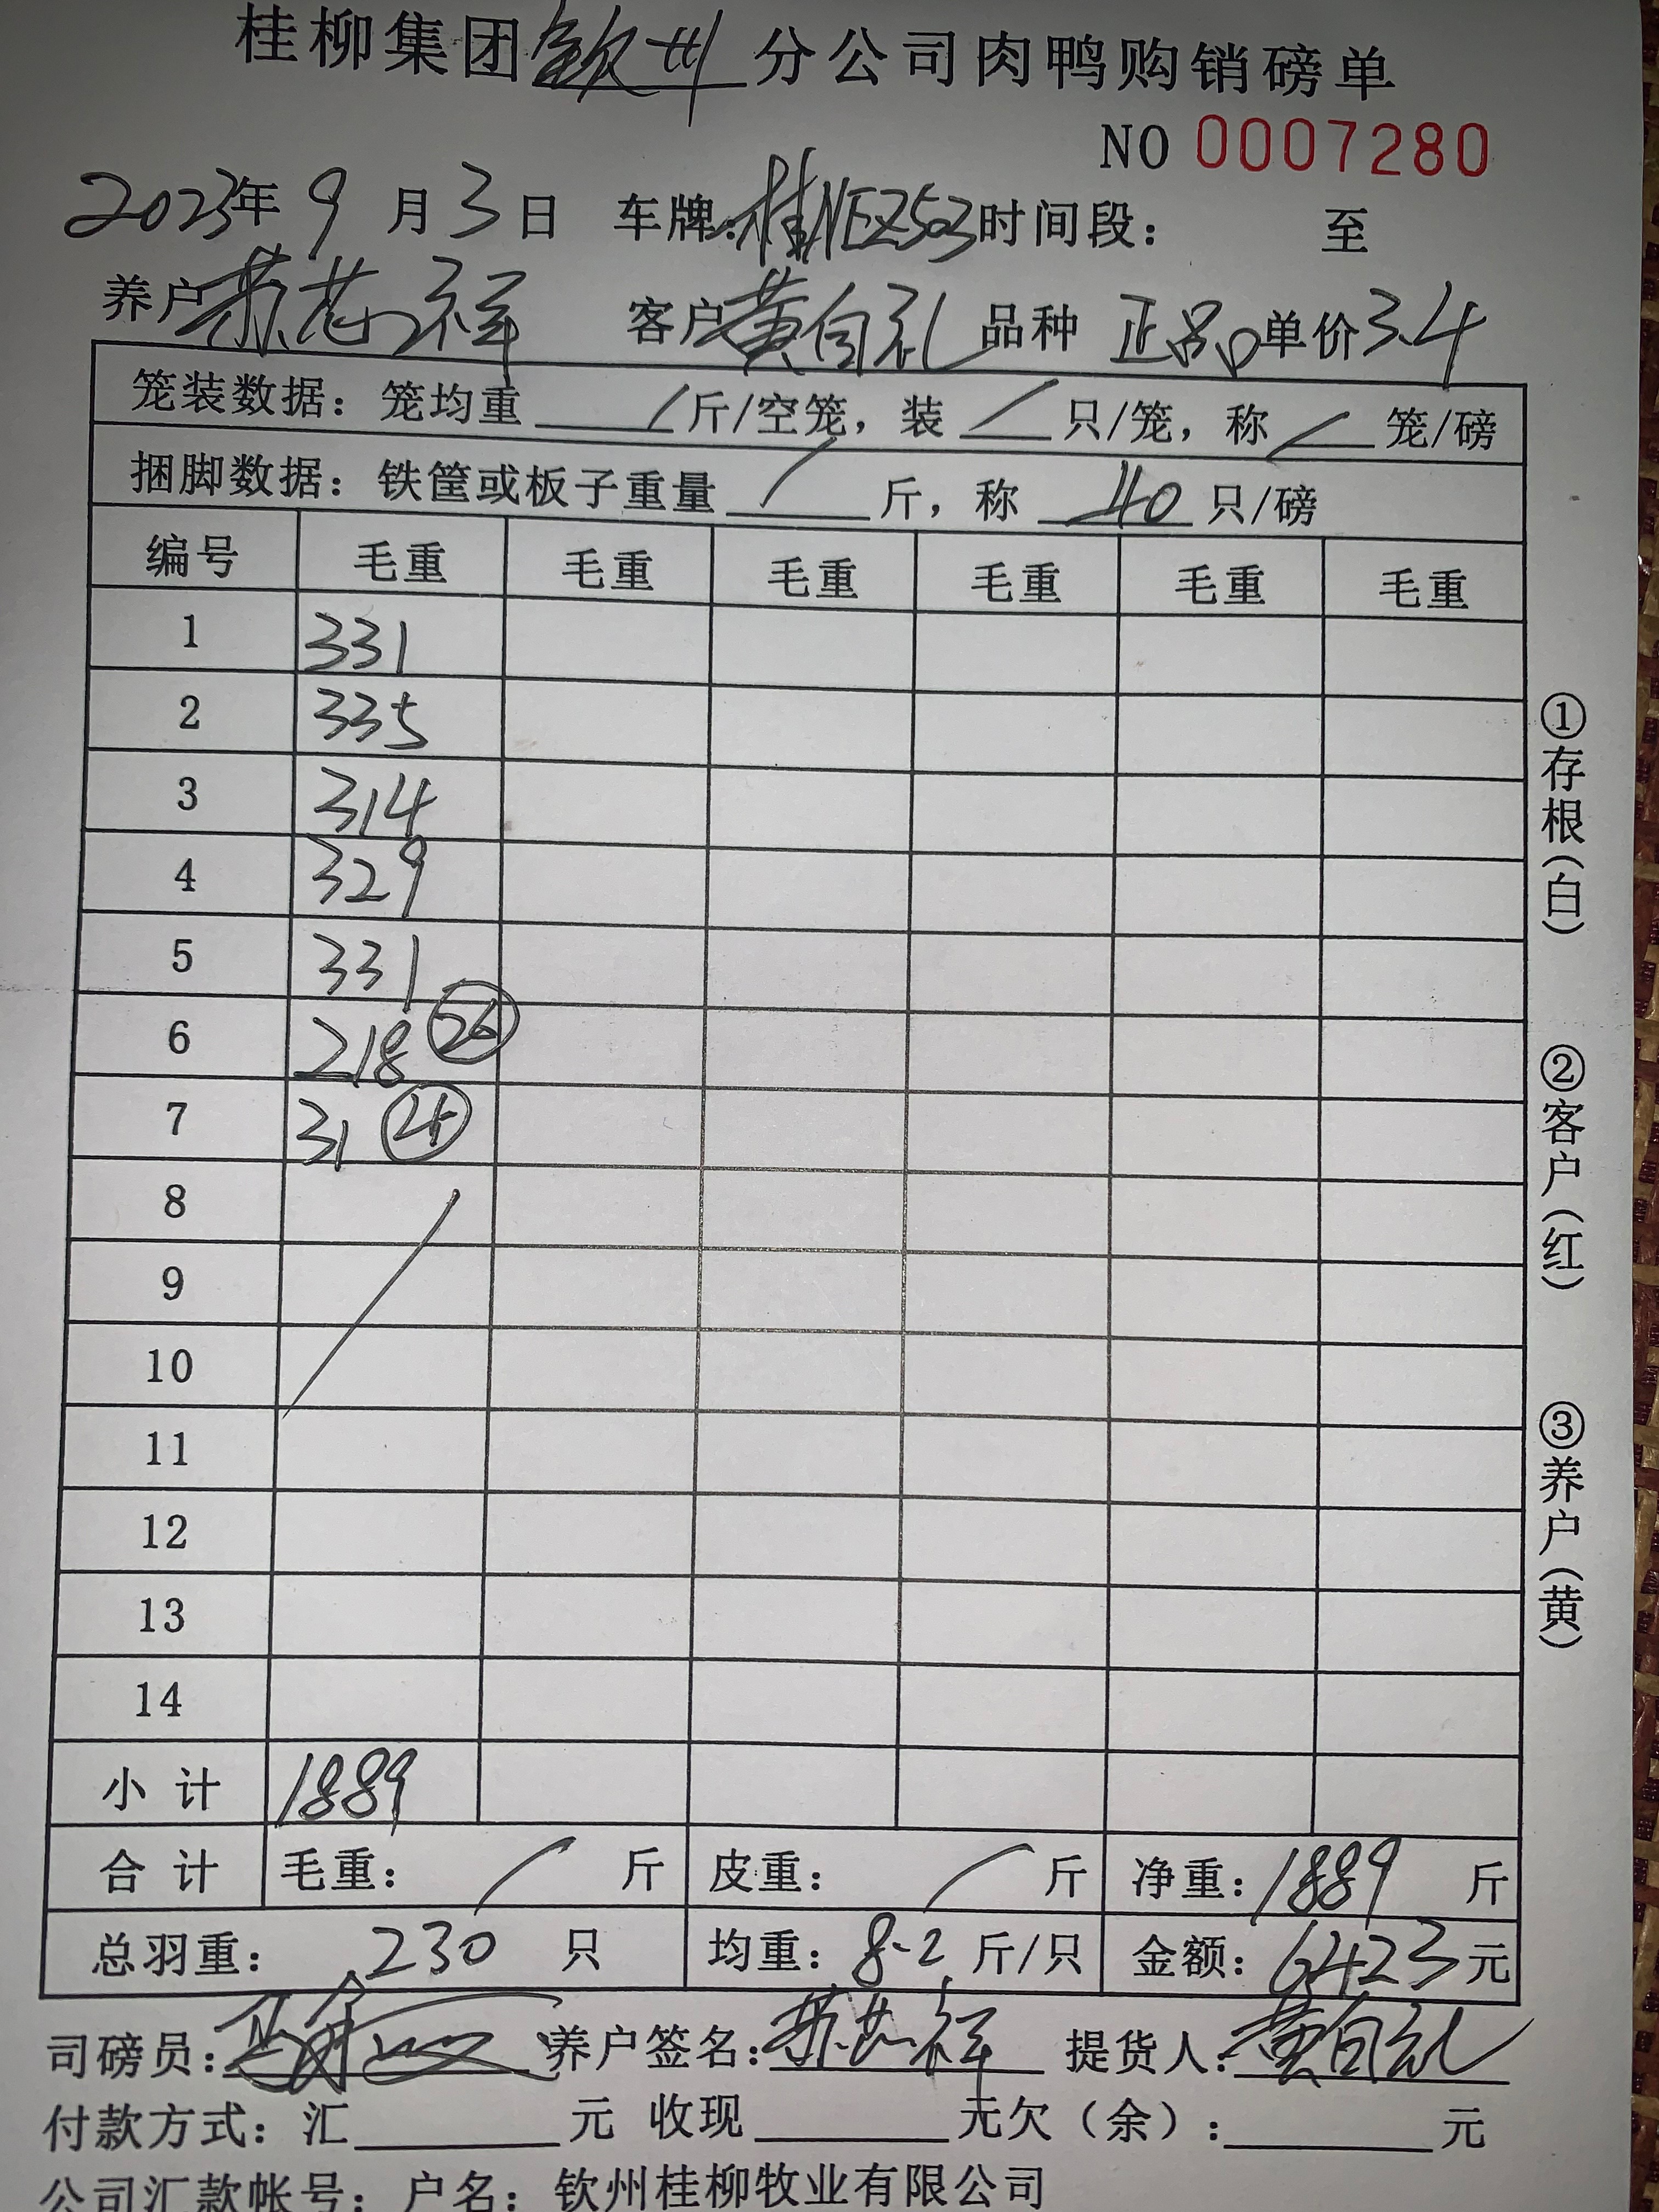 桂柳集团钦州分公司肉鸭购销磅单
NO 0007280
2023年9月3日 车牌:桂NEZ503时间段: 至
养户苏芯祥 客户黄自礼 品种 正品 单价3.4
笼装数据: 笼均重 / 斤/空笼, 装 / 只/笼, 称 / 笼/磅
捆脚数据: 铁筐或板子重量 / 斤, 称 40 只/磅
编号 毛重 毛重 毛重 毛重 毛重 毛重
1 331
2 335
3 314
4 329
5 331
6 218 26
7 31
8
9
10
11
12
13
14
小计 1889
合计 毛重: / 斤 皮重: / 斤 净重: 1889 斤
总羽重: 230 只 均重: 8-2 斤/只 金额: 6423元
司磅员: 养户签名:苏芯祥 提货人:黄自礼
付款方式: 汇 元 收现 元欠(余): 元
公司汇款帐号: 户名: 钦州桂柳牧业有限公司
①存根(白) ②客户(红) ③养户(黄)